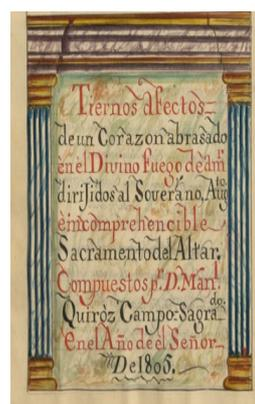 Tiernos afectos=
de un Corazon abrasado
en èl Divino fuego de am.ʳ
dirijidos al Soverano, Aug.ᵗᵒ
è incomprehencible
Sacramento del Altar.
Compuestos p.ʳ D. Man.ˡ
Quiróz Campo-Sagra.ᵈᵒ
en el Año de èl Señor
De 1805.